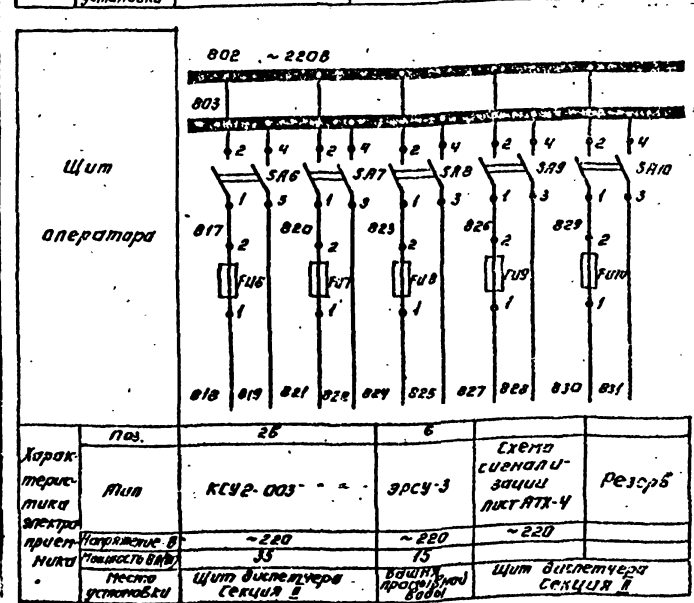 установка
802 ~220В
803
Щит
оператора
2 4 2 4 2 4 2 4 2 4
SA6 SA7 SA8 SA9 SA10
1 3 1 3 1 3 1 3 1 3
817 820 823 826 829
2 2 2 2 2
FU6 FU7 FU8 FU9 FU10
1 1 1 1 1
818 819 821 822 824 825 827 828 830 831
Характеристика электроприемника
Поз. 2б 6
Тип КСУ2-003 - " - ЭРСУ-3
Схема
сигнализации
лист АТХ-4
Резерв
Напряжение В ~220 ~220 ~220
Мощность ВА(Вт) 35 15
Место
установки
Щит диспетчера
Секция II
Башня
промывной
воды
Щит диспетчера
Секция II